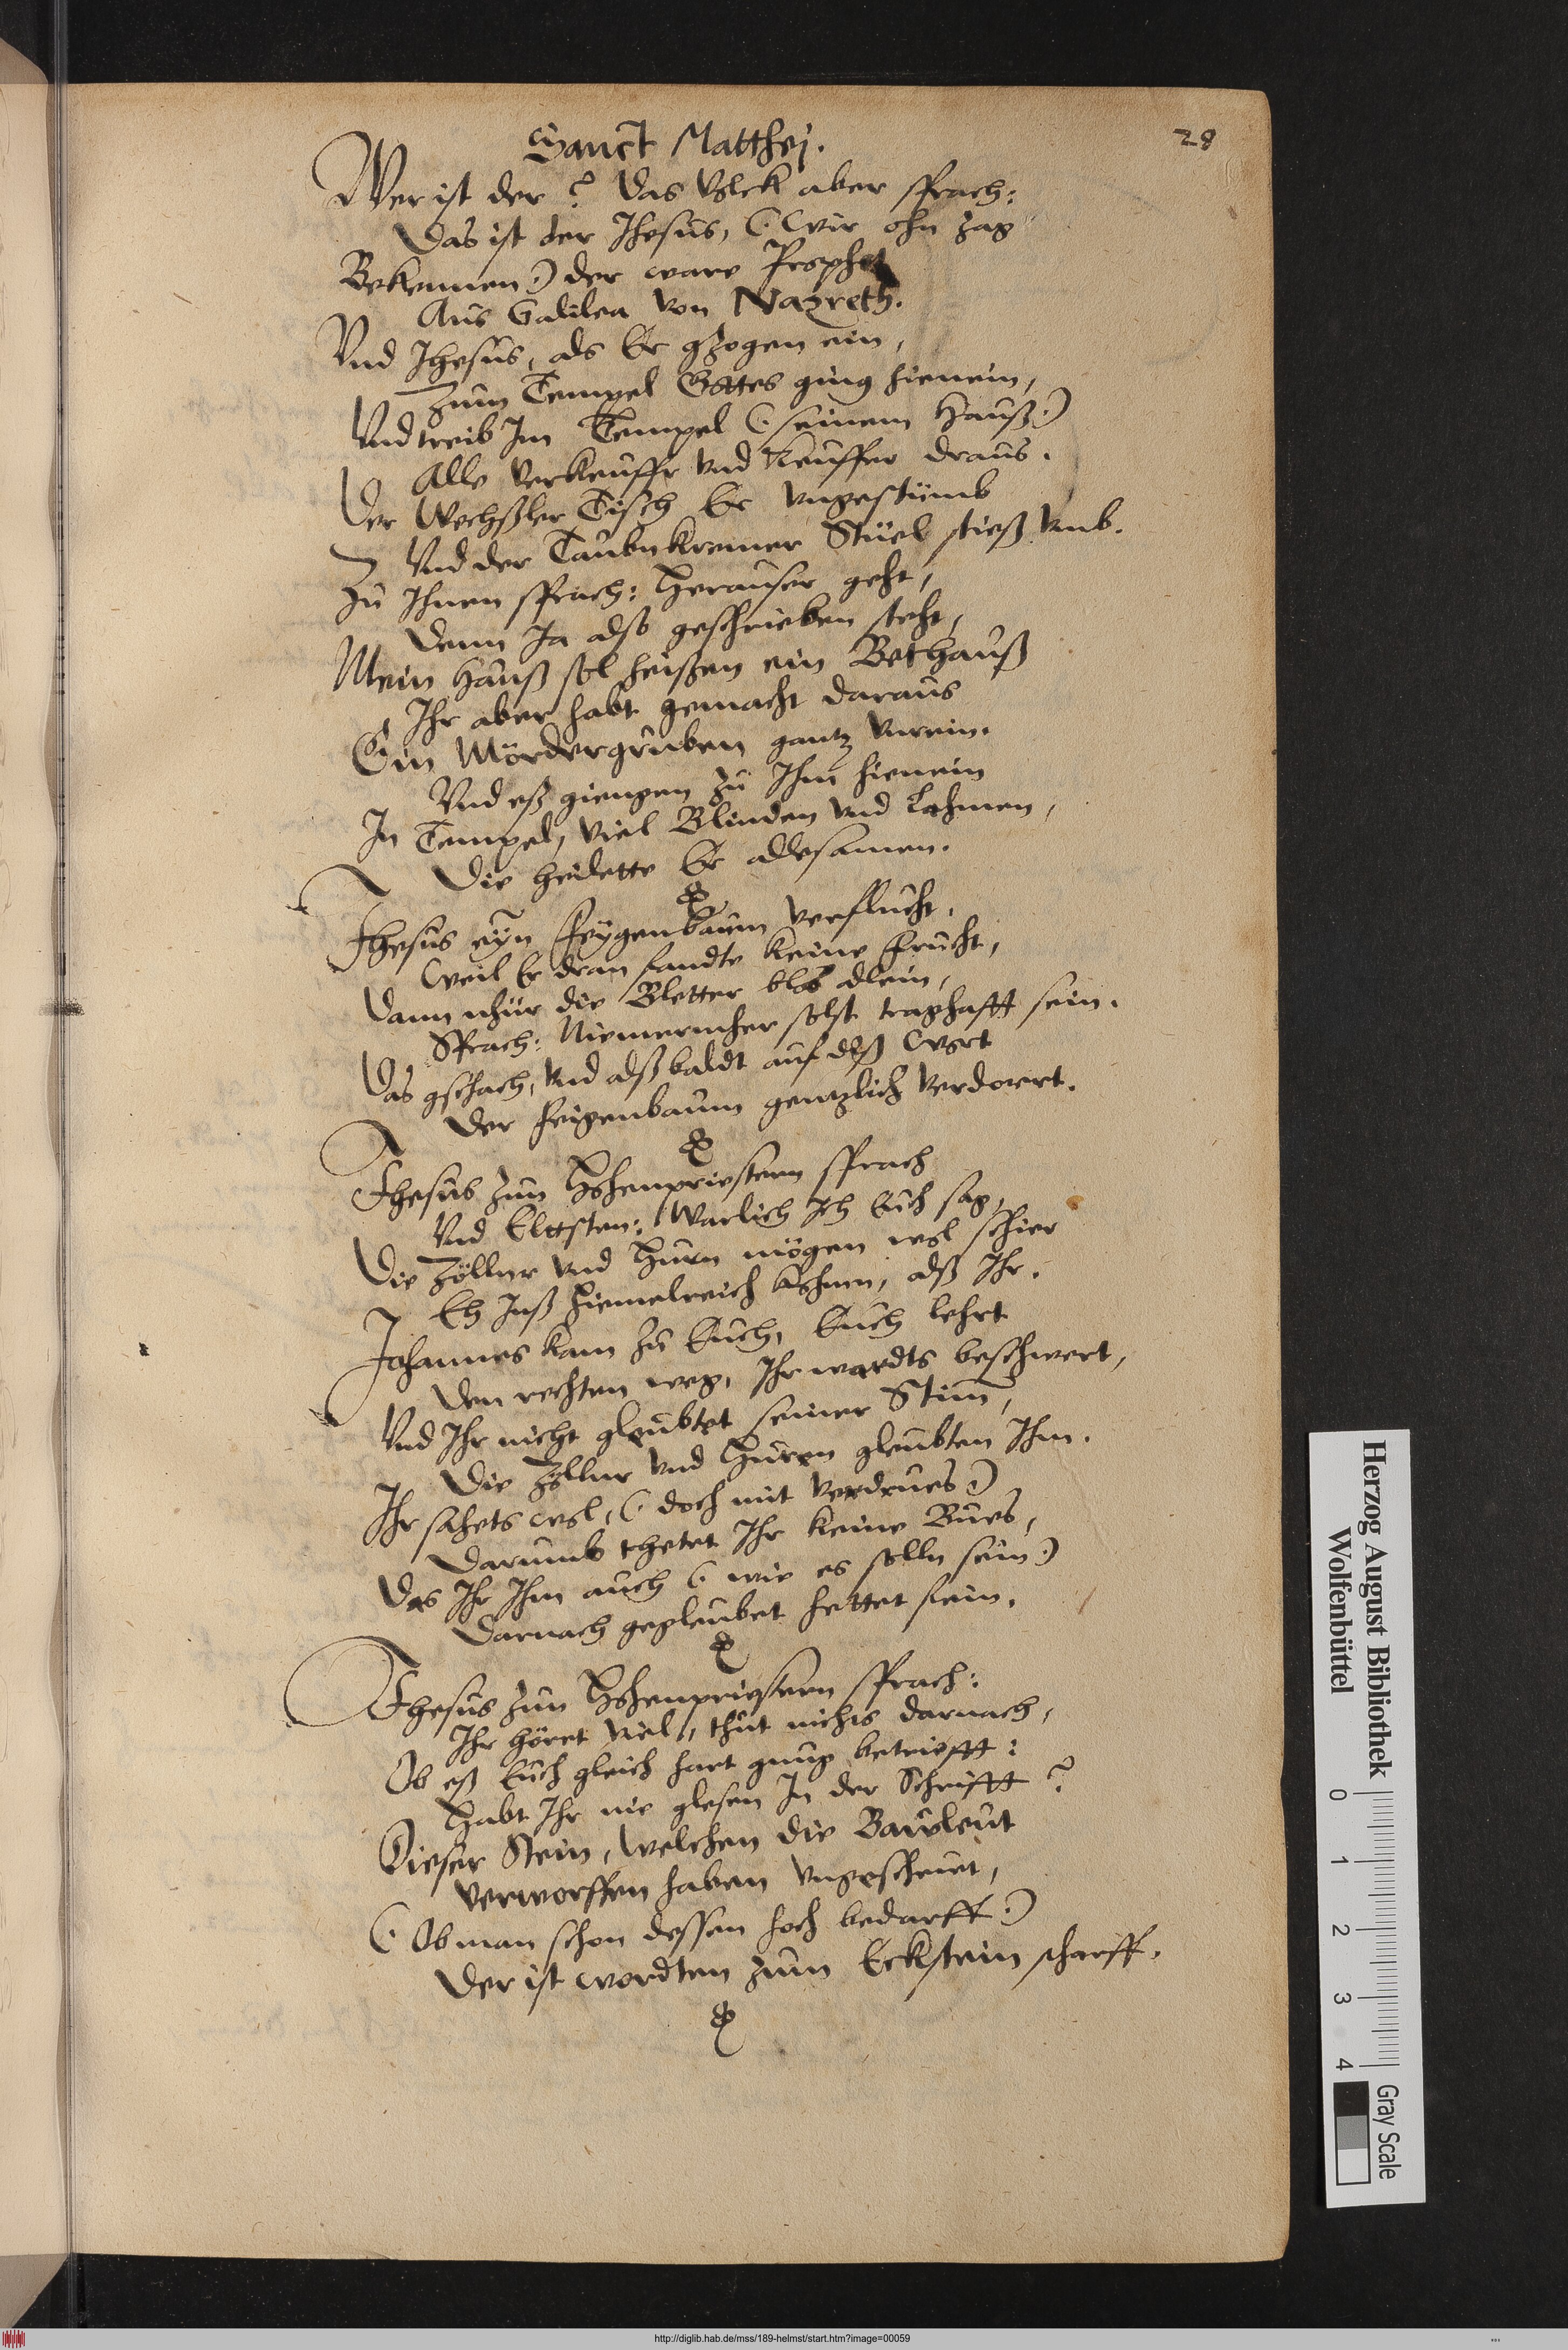 28
Sanct Matthej.
Wer ist der? Das Volck aber sprach:
Das ist der Jhesus, (: Wir ohn zag
Bekennen:) der ware Prophet
Aus Galilea von Nazreth.
Vnd Jhesus, als Er gzogen ein,
Zum Tempel Gottes ging hienein,
Vnd treib Im Tempel (: seinem Hauß:)
Alle Verkeuffr vnd Keuffer draus.
Der Wechßler Tisch Er vngestümb
Vnd der Taubnkremer Stüel stieß vmb.
Zu Ihnen sprach: Herausser geht,
Denn Ja also geschrieben steht,
Mein Hauß sol heißen ein Bethauß
Ihr aber habt gemacht daraus
Ein Mördergruben gantz vnrein.
Vnd eß giengen zu Ihm hienein
In Tempel, viel Blinden vnd Lahmen,
Die heilette Er allesamen.
Jhesus eyn Feygenbaum verflucht,
Weil Er dran fandte keine frucht,
Dann nhür die Bletter blos allein,
Sprach: Niemermher solst traghafft sein.
Das gschach, vnd alßbaldt auf diß Wort
Der feigenbaum gentzlich verdorrt.
Jhesus zun Hohenpriestern sprach
Vnd Eltesten: Warlich Ich Euch sag,
Die Zöllner vnd Hurn mögen wol schier
Eh Inß Himelreich kohmen, alß Ihr.
Johannes kam zu Euch, Euch lehrt
Den rechten weg, Ihr wardts beschwert,
Vnd Ihr nicht gleubtet seiner Stim,
Die Zöllnr vnd Huren gleubten Ihm.
Ihr sahets wol, (: doch mit verdrues:)
Darumb thetet Ihr keine Bues,
Das Ihr Ihm auch (: wie es solln sein:)
Darnach gegleubet hettet fein.
Jhesus zun Hohenpriestern sprach:
Ihr höret viel, thut nichts darnach,
Ob eß Euch gleich hart gnug betriefft:
Habt Ihr nie glesen In der Schrifft?
Dieser Stein, welchen die Bauleut
verworffen haben vngescheut,
(: Ob man schon dessen hoch bedarff:)
Der ist wordten zum Eckstein scharff.
Herzog August Bibliothek
Wolfenbüttel
0 1 2 3 4
Gray Scale
http://diglib.hab.de/mss/189-helmst/start.htm?image=00059